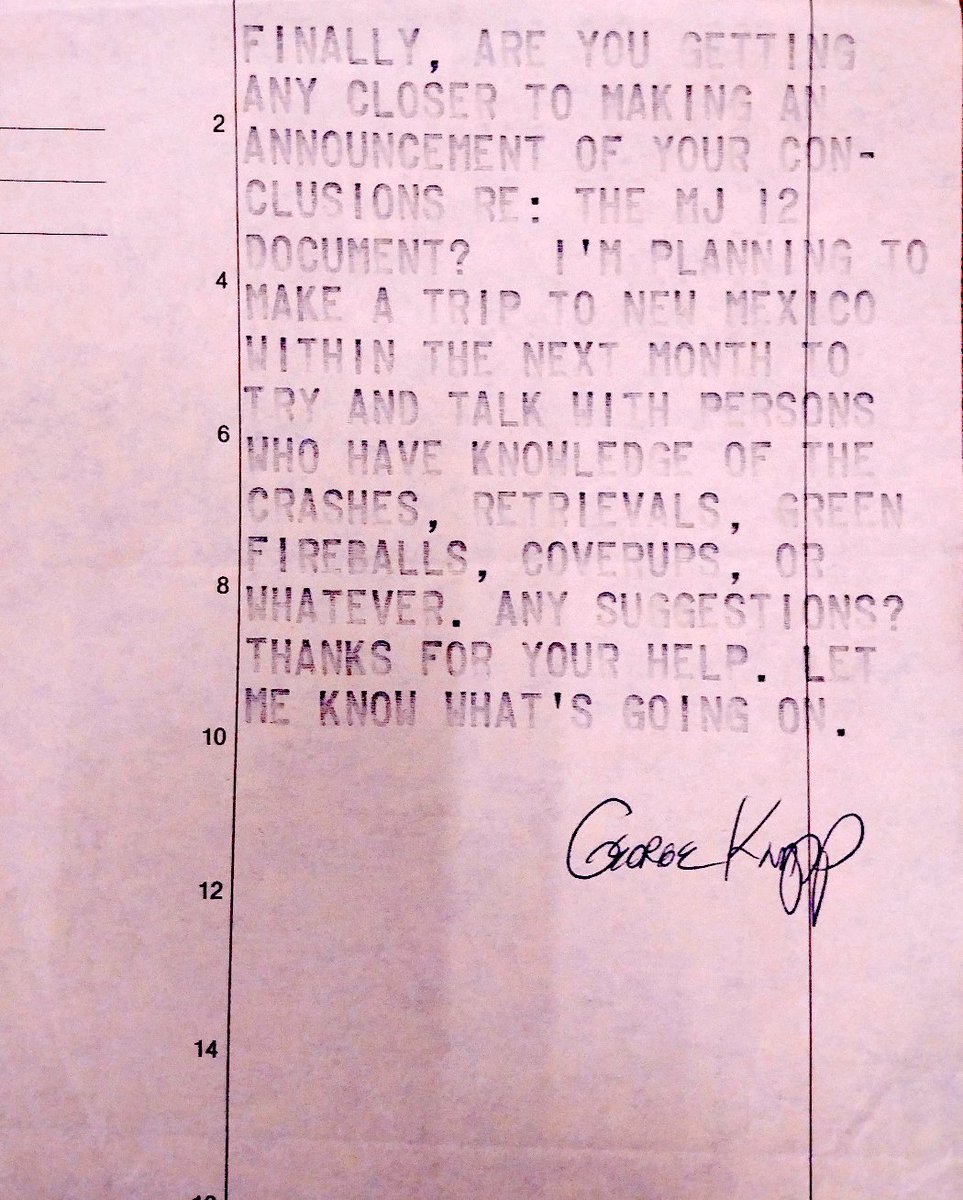 FINALLY, ARE YOU GETTING
ANY CLOSER TO MAKING AN
2
ANNOUNCEMENT OF YOUR CON-
CLUSIONS RE: THE MJ 12
DOCUMENT? I'M PLANNING TO
4
MAKE A TRIP TO NEW MEXICO
WITHIN THE NEXT MONTH TO
TRY AND TALK WITH PERSONS
6
WHO HAVE KNOWLEDGE OF THE
CRASHES, RETRIEVALS, GREEN
FIREBALLS, COVERUPS, OR
8
WHATEVER. ANY SUGGESTIONS?
THANKS FOR YOUR HELP. LET
ME KNOW WHAT'S GOING ON.
10
GEORGE KNAPP
12
14